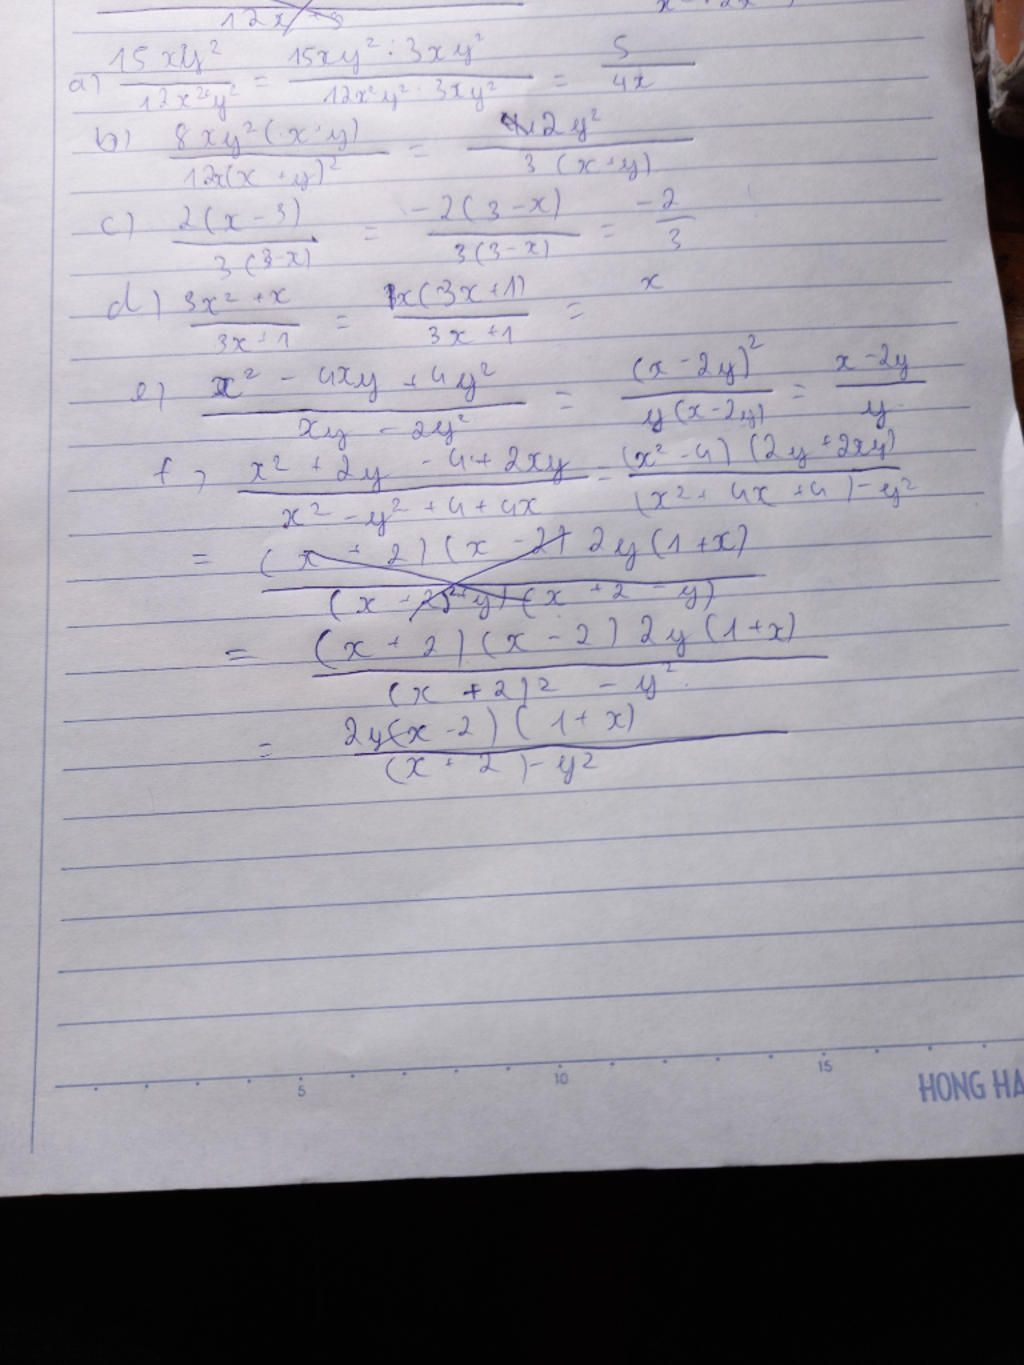 12x
a) 15xy² / 12x²y² = 15xy² : 3xy² / 12x²y² : 3xy² = 5 / 4x
b) 8xy²(x+y) / 12x(x+y)² = 2y² / 3(x+y)
c) 2(x-3) / 3(3-x) = -2(3-x) / 3(3-x) = -2 / 3
d) 3x²+x / 3x+1 = x(3x+1) / 3x+1 = x
e) x² - 4xy + 4y² / xy - 2y² = (x-2y)² / y(x-2y) = x-2y / y
f) x² + 2y - 4 + 2xy / x² - y² + 4 + 4x = (x²-4)(2y+2xy) / (x²+4x+4)-y²
= (x+2)(x-2) 2y(1+x) / (x+2+y)(x+2-y)
= (x+2)(x-2) 2y(1+x) / (x+2)2 - y²
= 2y(x-2)(1+x) / (x+2)-y²
5 10 15
HONG HA